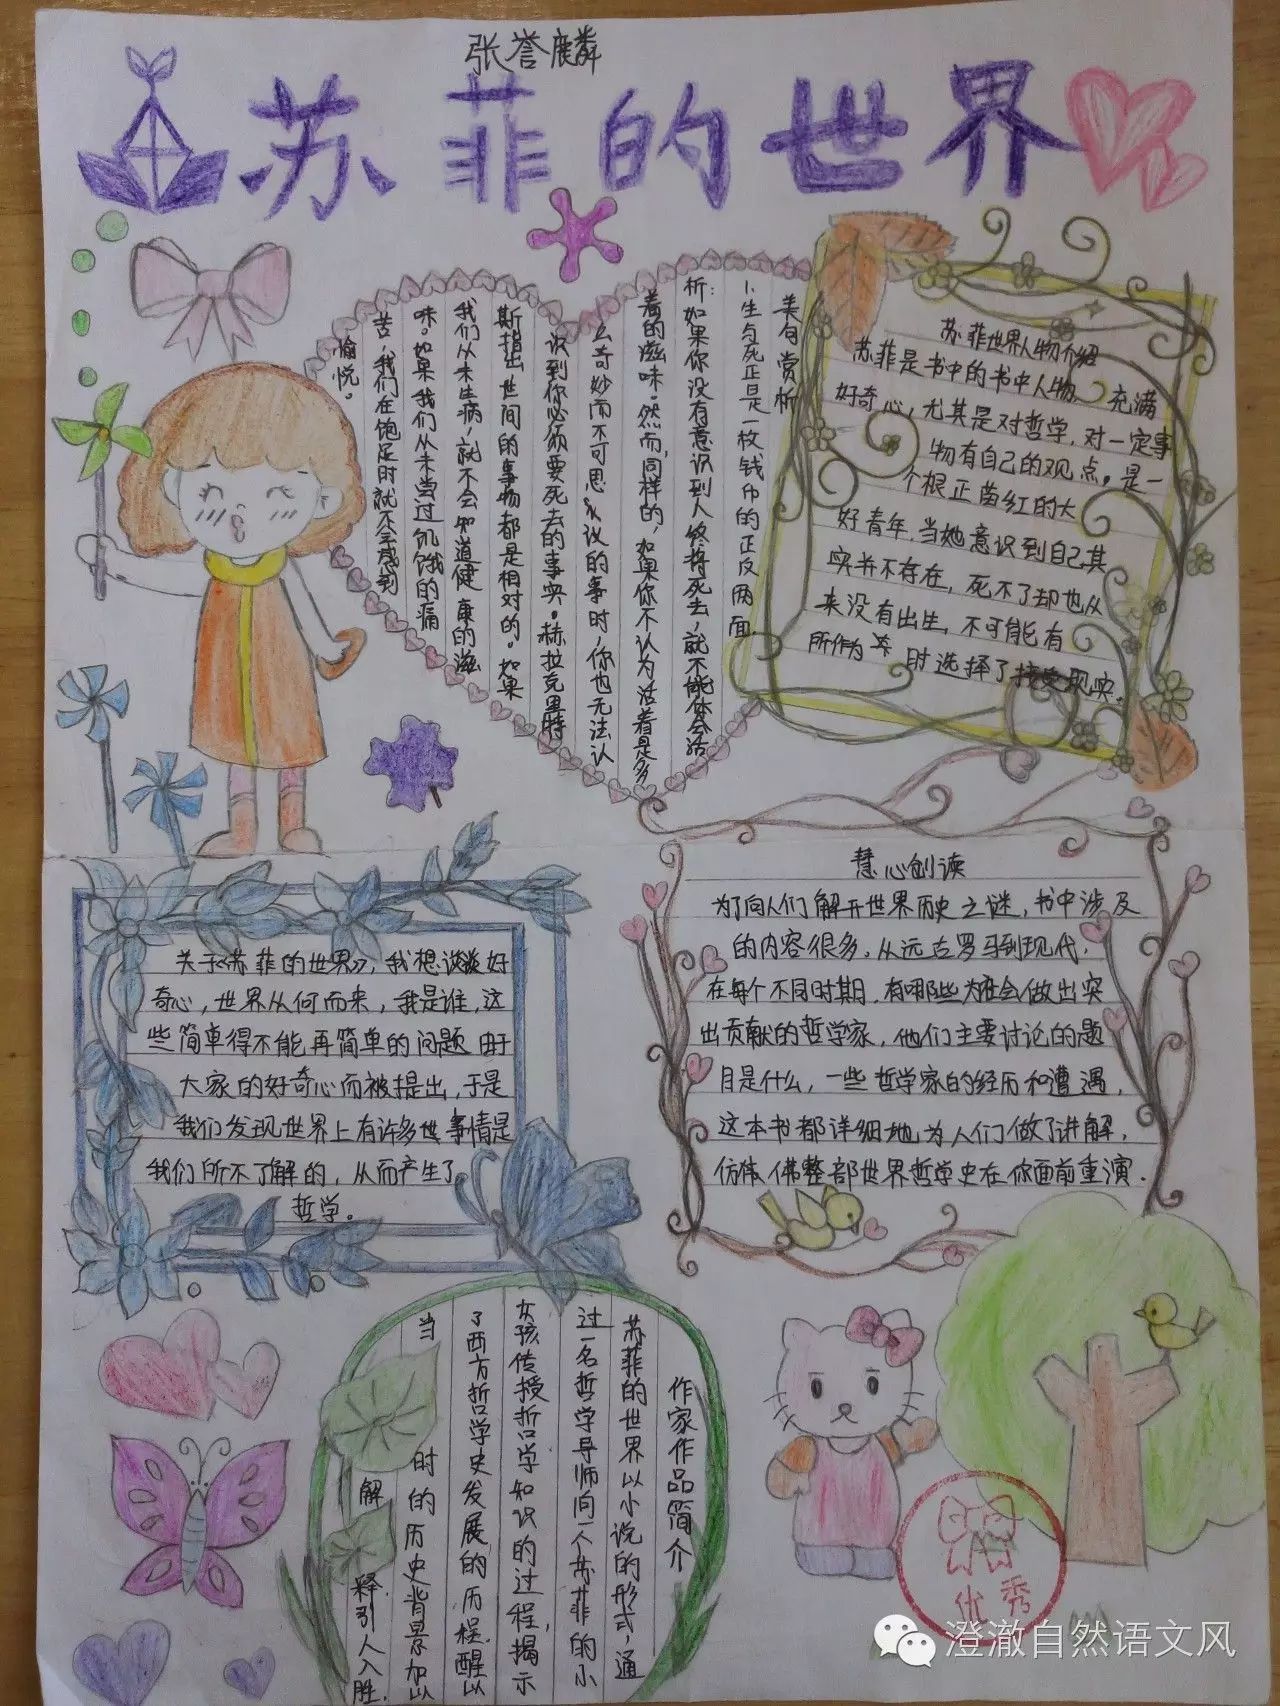 张誉麟
苏菲的世界
美句赏析
1、生与死正是一枚钱币的正反两面。
析：如果你没有意识到人终将死去，就不能体会活
着的滋味。然而，同样的，如果你不认为活着是多
么奇妙而不可思议的事时，你也无法认
识到你必须要死去的事实。赫拉克里特
斯指出世间的事物都是相对的。如果
我们从未生病，就不会知道健康的滋
味。如果我们从未当过饥饿的痛
苦，我们在饱足时就不会感到
愉悦。
苏菲世界人物介绍
苏菲是书中的书中人物、充满
好奇心，尤其是对哲学，对一定事
物有自己的观点。是一
个根正苗红的大
好青年，当她意识到自己其
实并不存在，死不了却也从
来没有出生，不可能有
所作为
时选择了接受现实。
关于《苏菲的世界》，我想谈谈好
奇心，世界从何而来，我是谁，这
些简单得不能再简单的问题由于
大家的好奇心而被提出，于是
我们发现世界上有许多世事情是
我们所不了解的，从而产生了
哲学。
慧心创读
为了向人们解开世界历史之谜，书中涉及
的内容很多，从远古罗马到现代，
在每个不同时期，有哪些大社会做出突
出贡献的哲学家，他们主要讨论的题
目是什么，一些哲学家的经历和遭遇，
这本书都详细地为人们做了讲解，
仿佛整部世界哲学史在你面前重演．
作家作品简介
苏菲的世界以小说的形式，通
过一名哲学导师向一个苏菲的小
女孩传授哲学知识的过程，揭示
了西方哲学史发展的历程．醒以
当时的历史背景加以
解释，引人入胜．
优秀
澄澈自然语文风